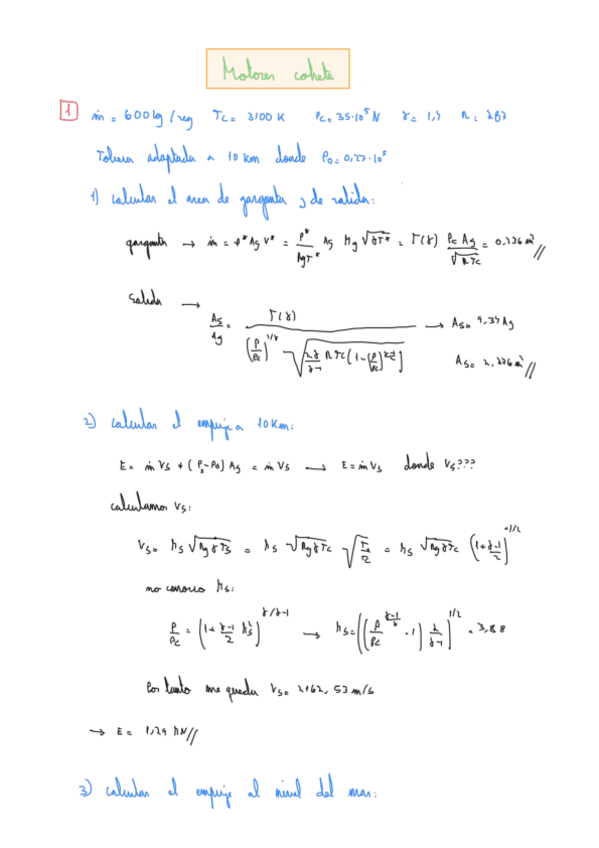 Motores cohete
1 ṁ = 600 kg/seg Tc = 3100 K Pc = 35·10⁵ N γ = 1,4 R = 287
Tobera adaptada a 10 km donde P₀ = 0,27·10⁵
1) calcular el area de garganta y de salida:
garganta → ṁ = ρ* Ag V* = P*/(Rg T*) Ag Mg √(γT*) = Γ(γ) Pc Ag/√(R Tc) = 0,236 m² //
Salida →
As/Ag = Γ(γ) / ((P/Pc)^(1/γ) √(2γ/(γ-1) R Tc [1-(P/Pc)^(γ-1/γ)])) → As = 9,39 Ag
As = 2,226 m² //
2) calcular el empuje a 10 Km:
E = ṁ Vs + (Ps - P₀) As = ṁ Vs → E = ṁ Vs donde Vs???
calculamos Vs:
Vs = Ms √(Rg γ Ts) = Ms √(Rg γ Tc) √(Ts/Tc) = Ms √(Rg γ Tc) (1 + γ-1/2)^(-1/2)
no conozco Ms:
P/Pc = (1 + γ-1/2 Ms²)^(γ/γ-1) → Ms = (((P/Pc)^(γ-1/γ) - 1) 2/(γ-1))^(1/2) = 3,88
Por tanto me queda Vs = 2162,53 m/s
→ E = 1,29 MN //
3) calcular el empuje al nivel del mar: